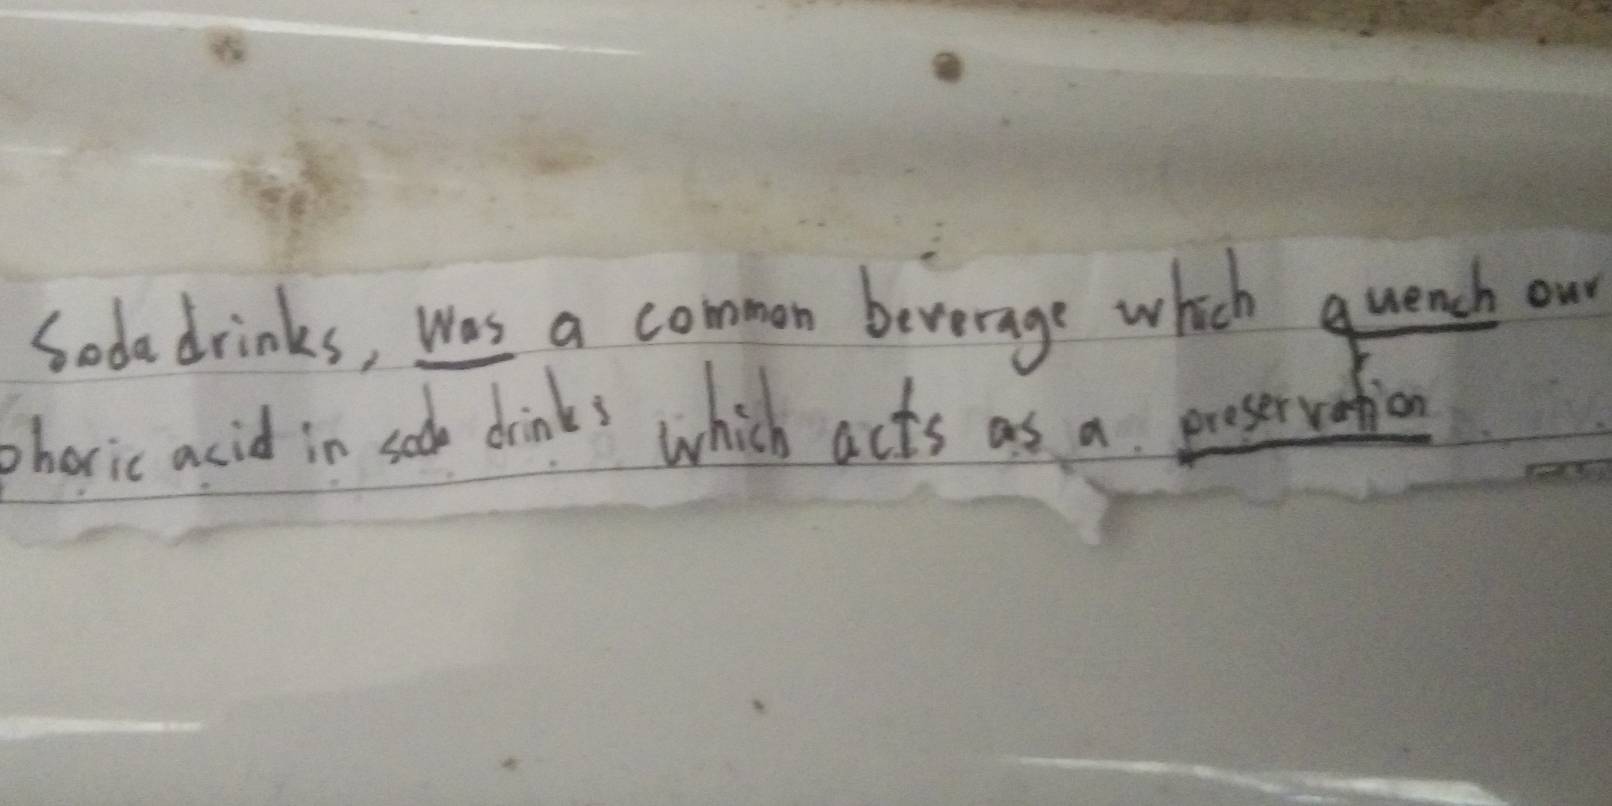 Soda drinks, was a common beverage which quench our
phoric acid in soda drinks which acts as a preservation